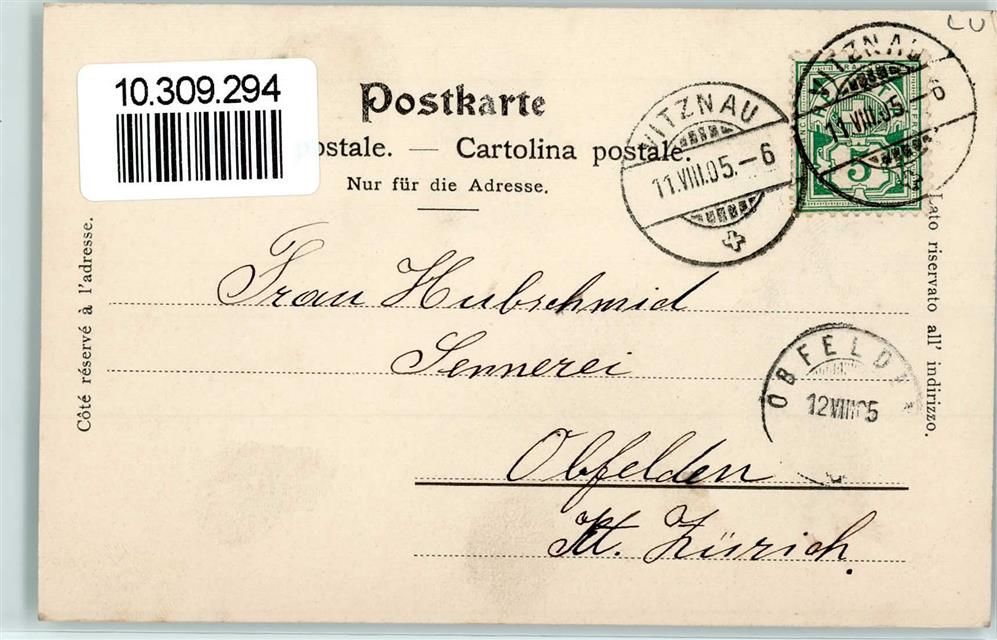 LU
10.309.294
Postkarte
postale. — Cartolina postale.
Nur für die Adresse.
VITZNAU
11.VIII.05.–6
VITZNAU
11.VIII.05.–6
5
Côté réservé à l'adresse.
Lato riservato all' indirizzo.
Frau Hubschmid
Sennerei
OBFELD
12 VIII 05
Obfelden
Kt. Zürich.